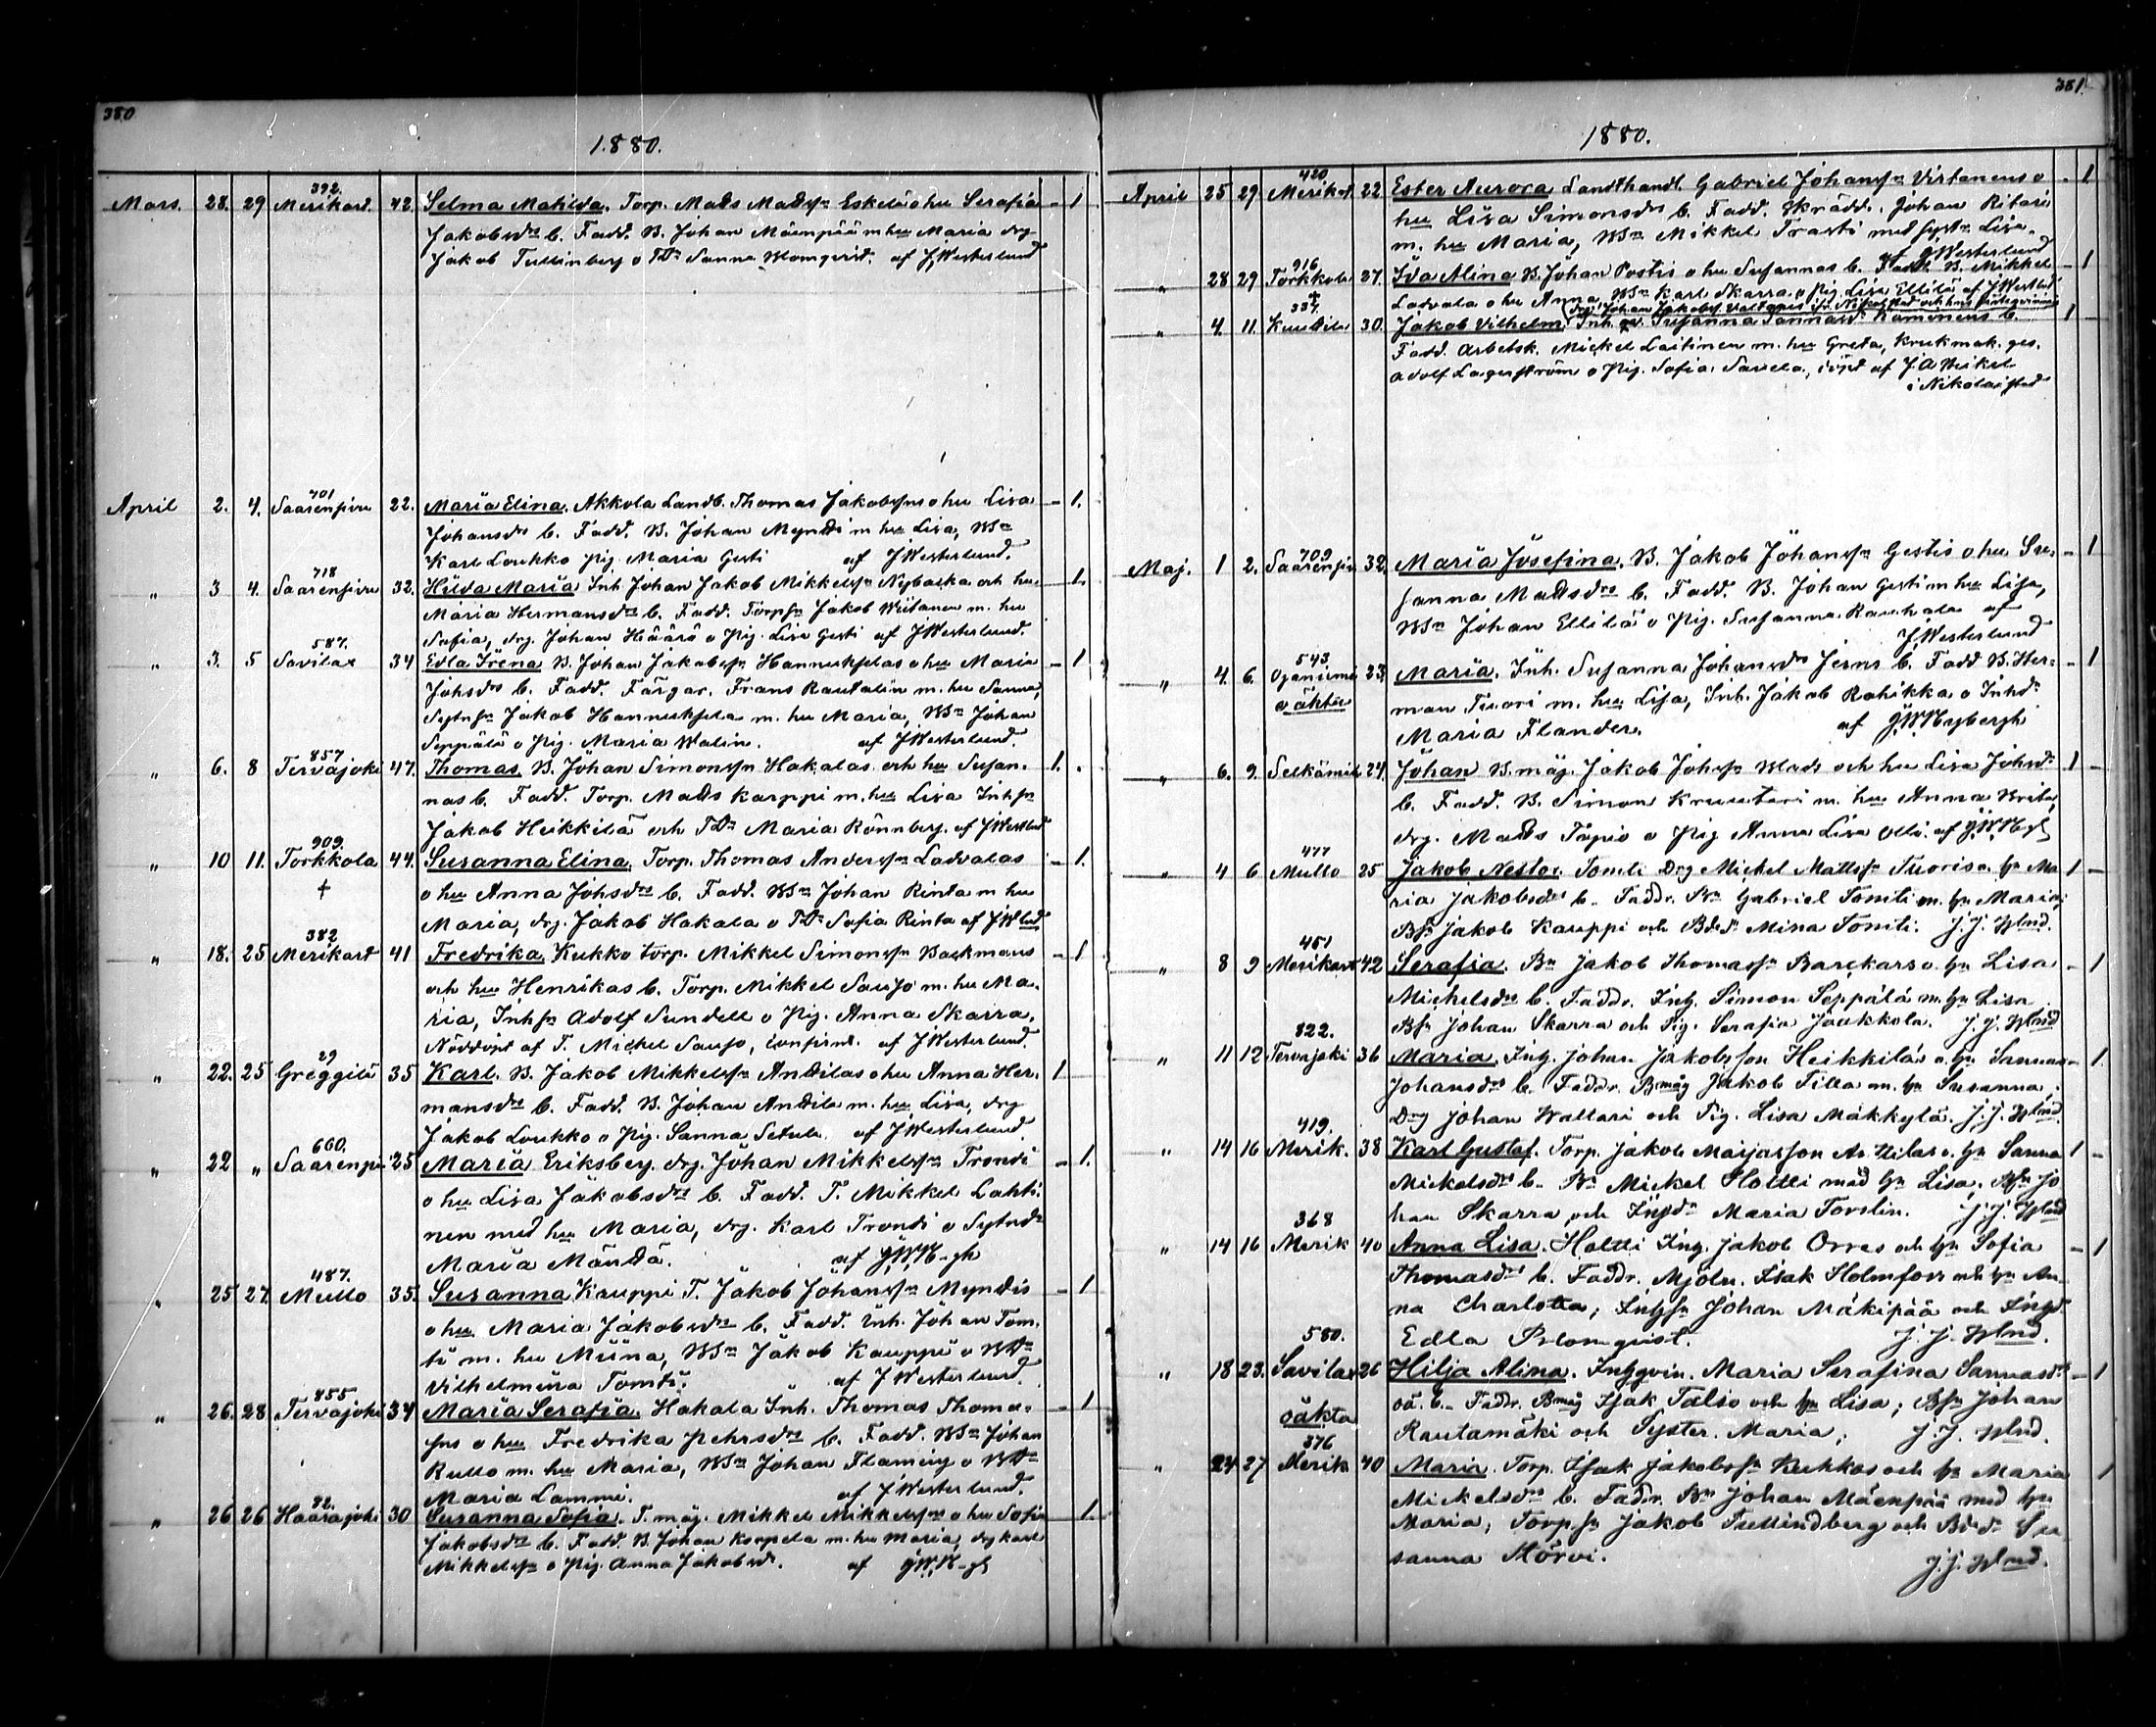 380
1880.
392.
Mars. 28. 29 Merikart. 42. Selma Matilda. Torp. Mads Madsson Eskelä o hu Serafia - 1
Jakobsdr b. Fadd. B. Johan Mäenpää m hu Maria drg
Jakob Tullinberg o TDr Sanna Blomqvist. af J Westerlund
701
April 2. 4. Saarenpää 22. Maria Elina. Akkola Landb. Thomas Jakobssons o hu Lisa - 1.
Johansdr b. Fadd. B. Johan Mynti m hu Lisa, BSn
Karl Loukko Pig. Maria Gesti af J Westerlund.
718
" 3 4. Saarenpää 32. Hilda Maria Inh Johan Jakob Mikkelsson Nybacka och hu - 1.
Maria Hermansdr b. Fadd. Torpsn Jakob m. hu
Sofia, drg. Johan Häärä o Pig. Lisa Gesti af J Westerlund.
587.
" 3. 5 Savilax 34 Edla Irena B. Johan Jakobsson Hannukselas o hu Maria - 1
Johsdr b. Fadd. Färgar. Frans Rautalin m. hu Sanna,
Sytnsn Jakob Hannuksela m. hu Maria, BSn Johan
Seppälä o Pig. Maria Walin. af J Westerlund.
857
" 6. 8 Tervajoki 47. Thomas. B. Johan Simonsson Hakalas och hu Susan- 1. -
nas b. Fadd. Torp. Mads Karppi m. hu Lisa Inhsn
Jakob Heikkilä och TDr Maria Rönnberg. af J Westlud
909.
" 10 11. Torkkola 44. Susanna Elina. Torp. Thomas Andersson Ladvalas - 1.
† o hu Anna Johsdr b. Fadd. BSn Johan Rinta m hu
Maria, drg. Jakob Hakala o TDr Sofia Rinta af J Wlud
382
" 18. 25 Merikart 41 Fredrika Kukko torp. Mikkel Simonsson Backmans - 1
och hu Henrikas b. Torp. Mikkel Saujo m. hu Ma-
ria, Inhsn Adolf Sundell o Pig. Anna Skarra.
Nöddöpt af T. Mickel Saujo, confirmt. af J Westerlund.
29
" 22. 25 Greggilä 35 Karl. B. Jakob Mikkelsson Anttilas o hu Anna Her- 1 -
mansdr b. Fadd. B. Johan Anttila m. hu Lisa, drg
Jakob Loukko o Pig. Sanna Setula. af J Westerlund.
660.
" 22 " Saarenpää 25 Maria Eriksberg. drg. Johan Mikkelsson Tronti - 1.
o hu Lisa Jakobsdr b. Fadd. T. Mikkel Lahti-
nen med hu Maria, drg. Karl Tronti o Sytndr
Maria Mäntä. af
487.
" 25 27. Mullo 35. Susanna Kauppi T. Jakob Johansson Myntis - 1
o hu Maria Jakobsdr b. Fadd. Inh. Johan Tom-
ti m. hu Miina, BSn Jakob Kauppi o BDr
Vilhelmina Tomti. af J Westerlund.
855
" 26. 28 Tervajoki 34 Maria Serafia. Hakala Inh. Thomas Thomas- - 1
sns o hu Fredrika Pehrsdr b. Fadd. BSn Johan
Rullo m. hu Maria, BSn Johan Flaming o BDr
Maria Lammi. af J Westerlund.
92.
" 26 26 Haarajoki 30 Susanna Sofia. T. måg. Mikkel Mikkelssons o hu Sofia - 1.
Jakobsdr b. Fadd. B. Johan Korpela m. hu Maria, drg Karl
Mikkelsson o Pig. Anna Jakobsd. af
381.
1880.
420
April 25 29 Merikart 22 Ester Aurora Landthandl. Gabriel Johansson Virtanens o - 1
hu Lisa Simonsdr b. Fadd. Skrädd. Johan Ritari
m. hu Maria, BSn Mikkel Trasti med Systr Lisa.
af J Westerlund
916
" 28 29 Torkkola 27. Ida Alina B. Johan Postis o hu Susannas b. Fadd. B. Mikkel - 1
† Ladvala o hu Anna, BSn Karl Skarra o Pig. Lisa Ellilä af J Westlud
337.
" 4. 11. Kuudila 30. Jakob Vilhelm. Inh. Susanna Kamonens b. 1 -
Fadd. Arbetsk. Mickel Laitinen m. hu Greta, Krukmak. ges.
Adolf Lagerström o Pig. Sofia Savela, döpt af J. A.
i Nikolaistad
709
Maj. 1 2. Saarenpää 32. Maria Josefina. B. Jakob Johansson Gestis o hu Su- - 1
sanna Madsdr b. Fadd. B. Johan Gesti m hu Lisa,
BSn Johan Ellilä o Pig. Susanna Rauhala af
J Westerlund
543
" 4. 6. Orjaniemi 23. Maria. Inh. Susanna Johansdrs Jerns b. Fadd B. Her- - 1
oäkta man Tuori m. hu Lisa, Inh. Jakob Rahikka o Inhdr
Maria Flander. af Nybergh
" 6. 9. Selkämäki 24. Johan B.måg. Jakob Johsson Mads och hu Lisa Johsdr 1 -
b. Fadd. B. Simon Kruutari m. hu Anna Brita,
drg. Mads Tapio o Pig Anna Lisa Olli. af
477
" 4 6 Mullo 25 Jakob Nestor. Tomti Drg Mickel Mattsson Tuoris o. hu Ma 1 -
ria Jakobsdr b. Faddr. Bn Gabriel Tomti m. hu Maria,
BSn Jakob Kauppi och Bdr Mina Tomti. J. J. Wlnd.
451
" 8 9 Merikart 42 Serafia. Bn Jakob Thomasson Backars o. hu Lisa - 1
Michelsdr b. Faddr. Inh. Simon Seppälä m. hu Lisa
BSn Johan Skarra och Pig. Serafia Jaukkola. J. J. Wlnd
822.
" 11 12 Tervajoki 36 Maria. Inh. Johan Jakobsson Heikkiläs o. hu Sannas - 1.
Johansdr b. Faddr. Bmåg Jakob Tilla m. hu Susanna,
Drg Johan Wallari och Pig. Lisa Mäkkylä. J. J. Wlnd.
419.
" 14 16 Merik. 38 Karl Gustaf. Torp. Jakob Maijasson o. hu Sanna 1 -
Mickelsdr b. Bn Mickel Holtti med hu Lisa, BSn Jo
han Skarra och Inhdr Maria Forslin. J. J. Wlnd
368
" 14 16 Merik 40 Anna Lisa. Holtti Inh. Jakob Orres och hu Sofia - 1
Thomasdr b. Faddr. Mjöln. Isak Holmfors och hu An-
na Charlotta; Inhsn Johan Mäkipää och Inhd
Edla Blomqvist. J. J. Wlnd.
580.
" 18 23. Savilax 26 Hilja Alina. Inhqvin. Maria Serafina Sannasdr - 1
oäkta oä. b. Faddr. Bmåg Isak Talso och hu Lisa; BSn Johan
Rautamäki och Syster. Maria; J. J. Wlnd.
376
" 24 27 Merik 40 Maria. Torp. Isak Jakobsson Kukkos och hu Maria 1
Mickelsdr b. Faddr. Bn Johan Mäenpää med hu
Maria; Torpsn Jakob Tullindberg och Bdr Su
sanna Störvi. J. J. Wlnd.